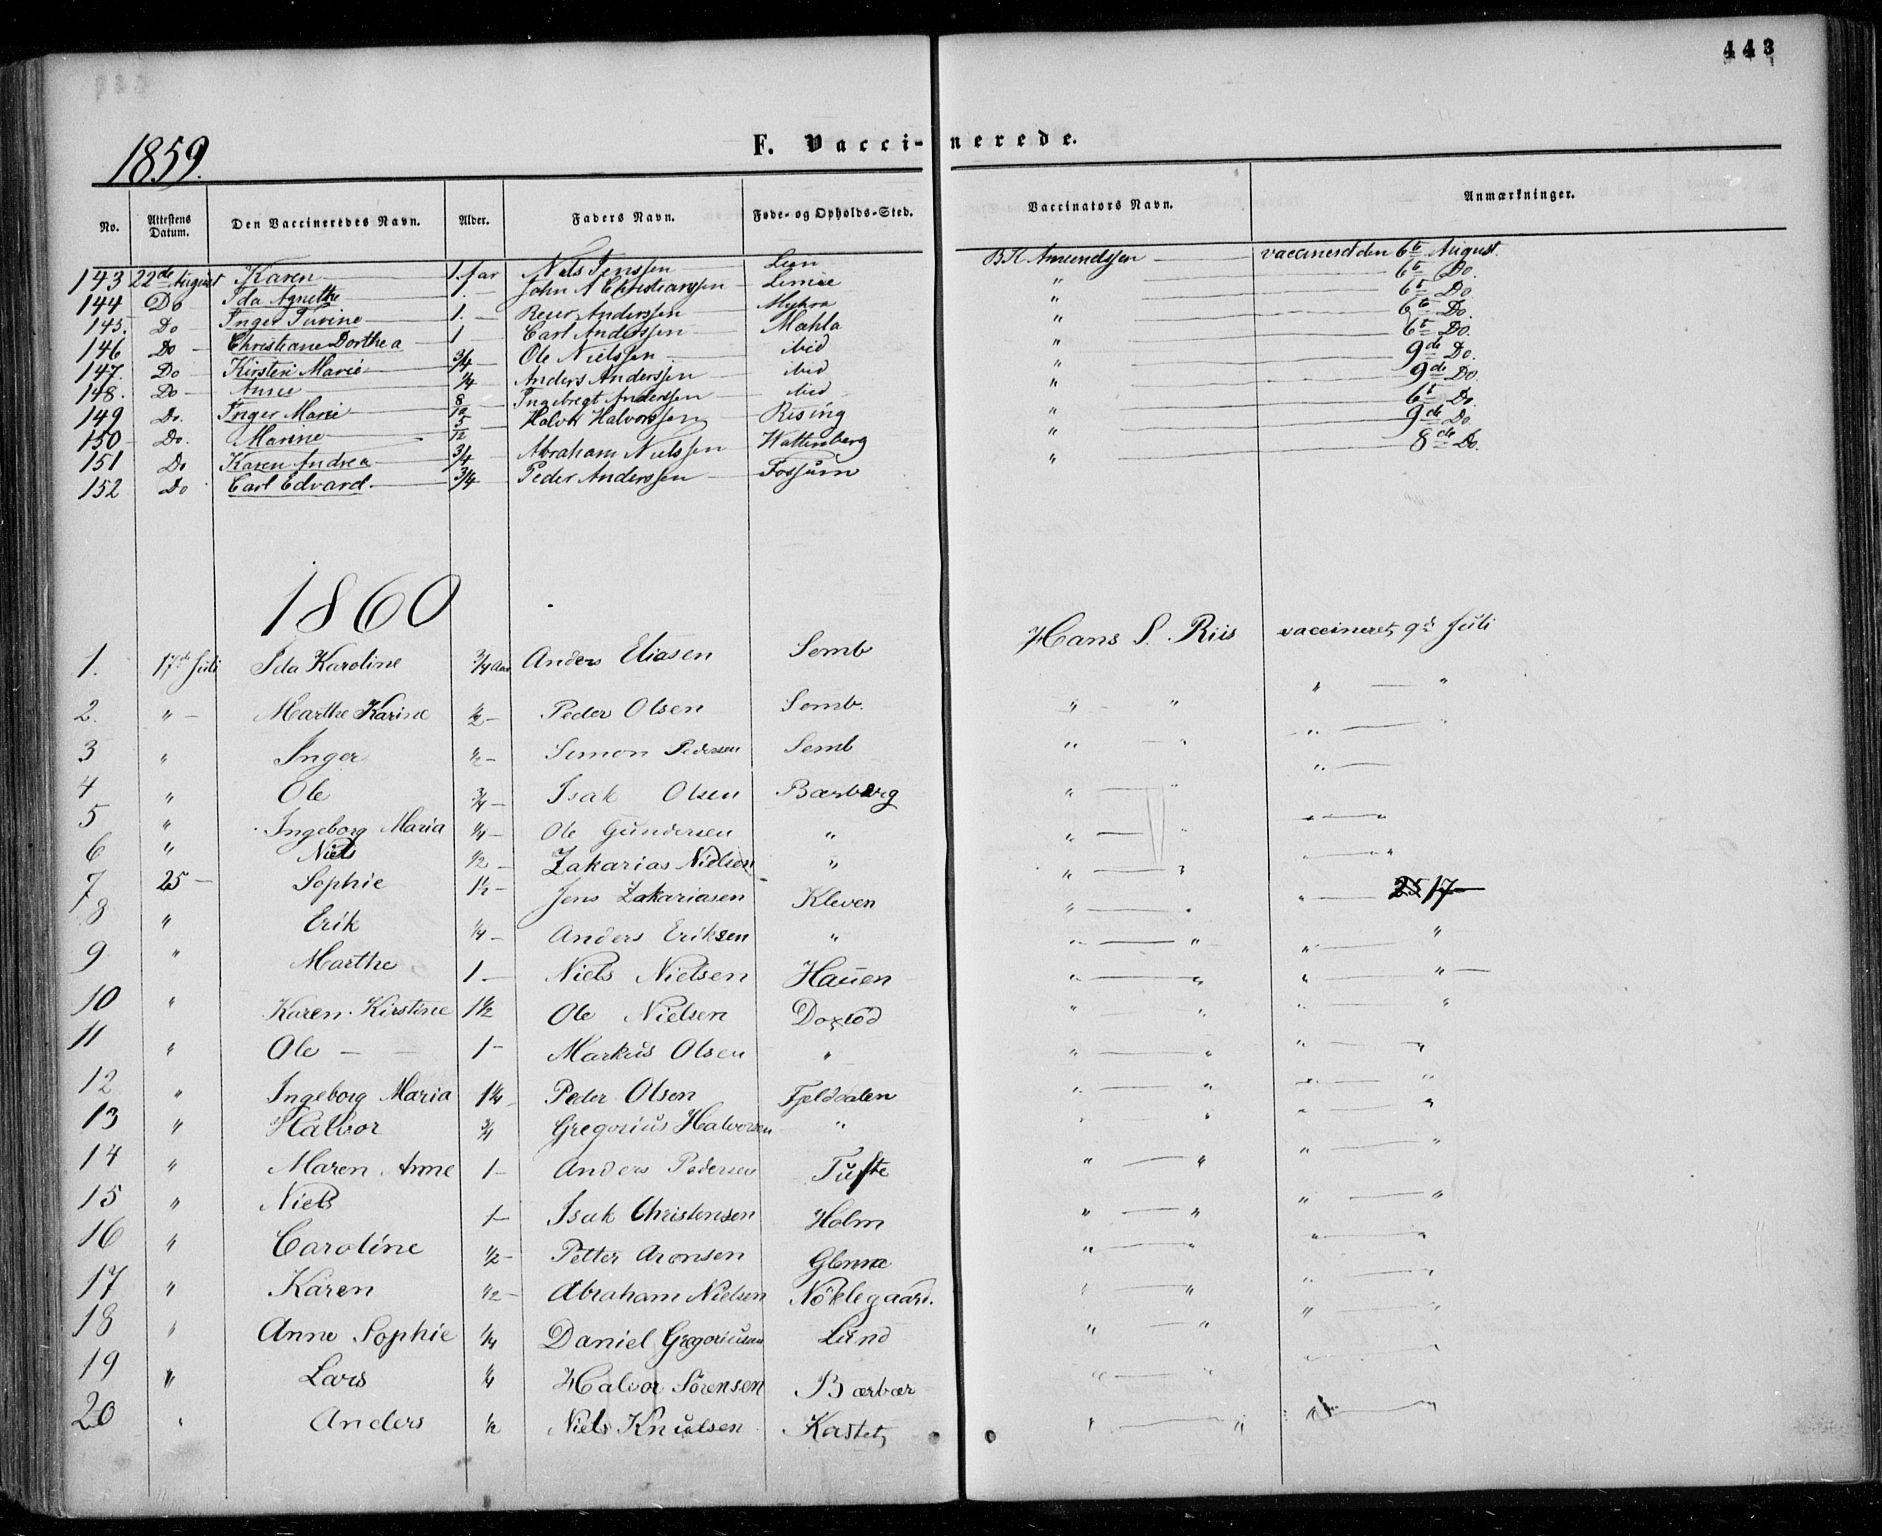 443
1859.
F. Vaccinerede.
No. Attestens Datum. Den Vaccineredes Navn. Alder. Faders Navn. Føde- og Opholds-Sted. Vaccinators Navn. Anmærkninger.
143 22de August Karen 1. aar Niels Jenssen Lien Amundssen vaccineret den 6te August
144 Do Ida Agnethe 1. — John A Christianssen " 6te Do.
145. Do Inger Turine 1. — Anderssen Myhra " 6te Do.
146 Do Christiane Dorthea 1 Carl Anderssen Mæhla " 6te Do.
147. Do Kirsten Marie 3/4 Ole Nielssen ibid " 9de Do.
148. Do Anne 1/4 Anders Anderssen ibid " 9de Do.
149 Do. Inger Marie 8/12 Ingebregt Anderssen ibid 6te Do
150 Do. Marine 5/12 Halvor Halvorssen Rising " 9de Do
151 Do Karen Andrea 3/4 Abraham Nielssen Wattenberg " 8de Do.
152 Do Carl Edvard. 3/4 Peder Anderssen Fossum "
1860
1. 17de Juli Ida Karoline 3/4 Aar Anders Eliasen Semb Hans S. Riis vaccineret 9de Juli
2. " — Marthe Karine 1/2 — Peder Olsen Semb. " — " " — "
3 " Inger 1/2 — Simon Pedersen Semb " — " " — "
4 " Ole 3/4 — Isak Olsen Bærberg " — " " —
5 " Ingeborg Maria 1/4 — Ole Gundersen " " — " " — "
6 " Niels 1/2 — Zakarias Nielsen " " — " " — "
7 25 — Sophie 1 1/2 — Jens Zakariasen Kleven " — " " — 17 —
8 " Erik 1/4 — Anders Eriksen " " — " " — "
9 " Marthe 1 — Niels Nielsen Hauen " — " " — " —
10 " Karen Kirstine 1 1/2 Ole Nielsen Doxlöd " " " — "
11 " Ole — — 1 — Markus Olsen " " — " " — "
12 " Ingeborg Maria 1 1/4 Peder Olsen Fjeldvalen " — " " — "
13 " Halvor 3/4 Gregorius Halvorsen " " " " — "
14 " Maren Anne 1 — Anders Pedersen Tufte " — " " — "
15 " Niels 1 — Isak Christensen Holm " — " " — "
16 " Caroline 1/2 — Petter Aronsen Glenne " — " " — "
17 " Karen 1/2 — Abraham Nielsen Nöklegaard. " — " " — "
18 " Anne Sophie 1/4 Daniel Gregoriusen Lund " — " " — "
19 " Lars 1/4 Halvor Sörensen Bærbær " — " " — "
20 " Anders 1/2 Niels Knudsen Kastet " — " " —